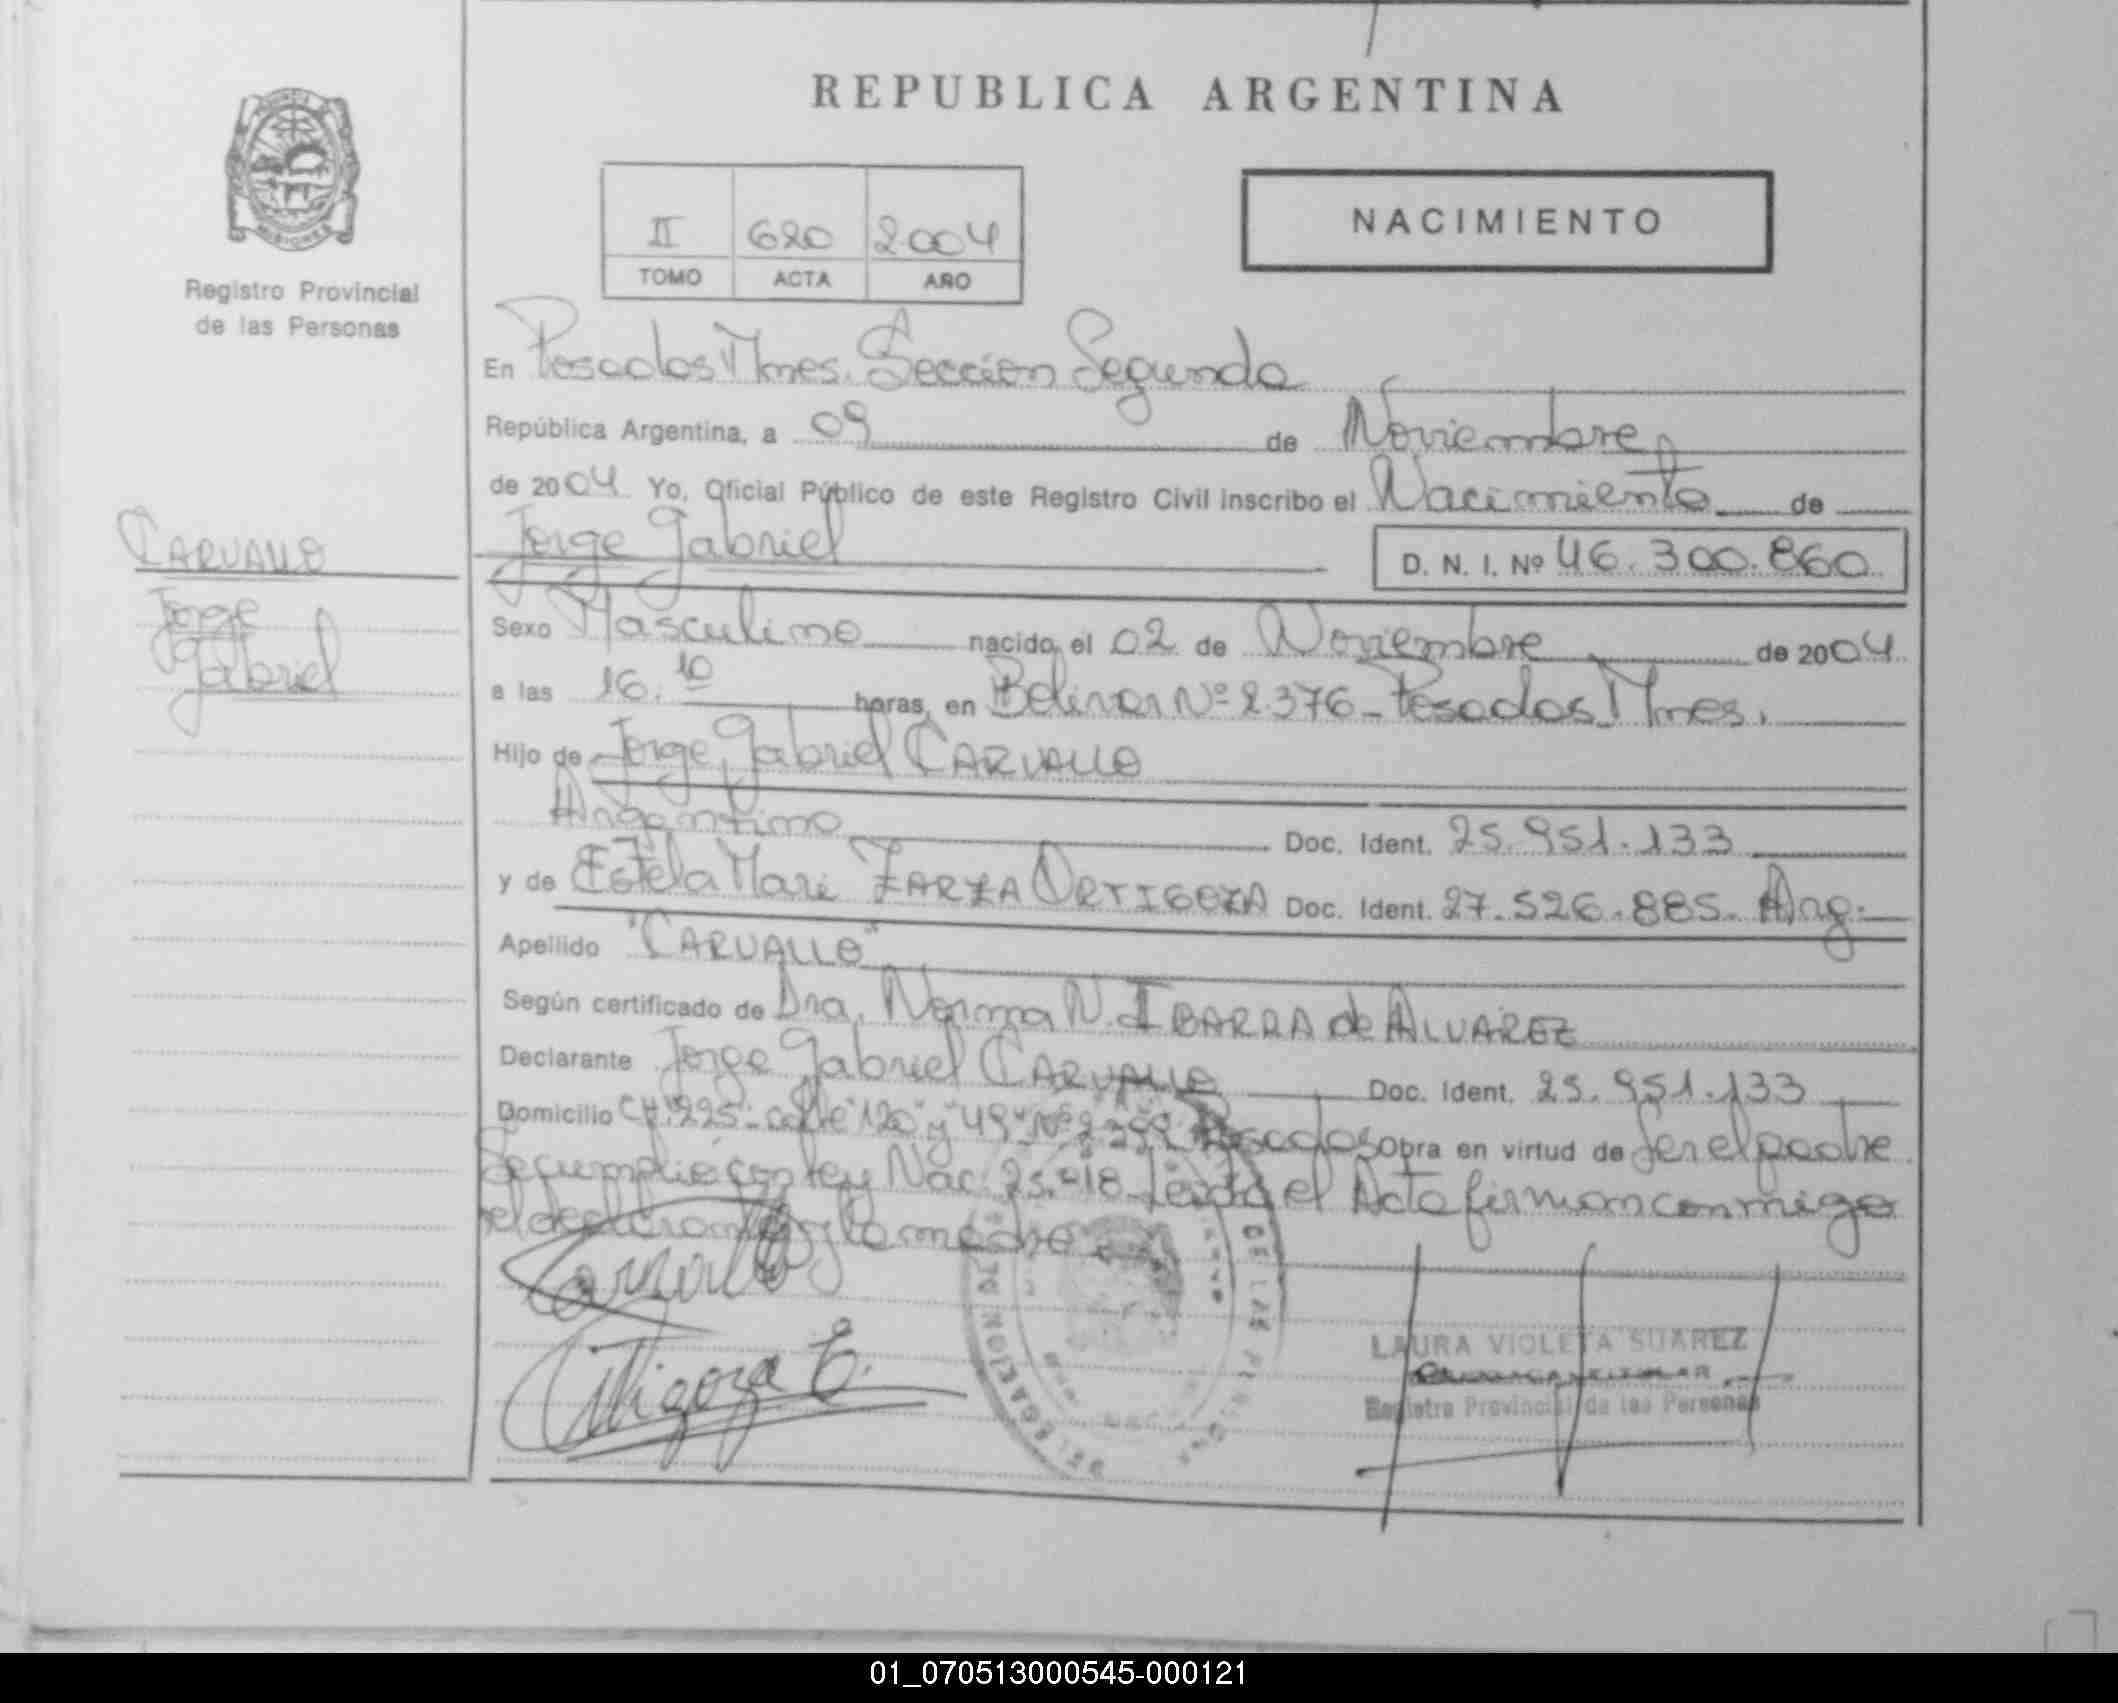 REPUBLICA ARGENTINA
MISIONES
Registro Provincial
de las Personas
II 620 2004
TOMO ACTA AÑO
NACIMIENTO
En Posadas Mnes. Sección Segunda
República Argentina, a 09 de Noviembre
de 2004 Yo, Oficial Público de este Registro Civil inscribo el Nacimiento de
Jorge Gabriel D. N. I. Nº 46.300.860
CARVALLO
Jorge
Gabriel
Sexo Masculino nacido el 02 de Noviembre de 2004
a las 16.10 horas, en Bolivar Nº 2.376 - Posadas Mnes.
Hijo de Jorge Gabriel CARVALLO
Argentino Doc. Ident. 25.951.133
y de Estela Mari ZARZA ORTIGOZA Doc. Ident. 27.526.885. Arg.
Apellido "CARVALLO"
Según certificado de Dra. Norma N. IBARRA de ALVAREZ
Declarante Jorge Gabriel CARVALLO Doc. Ident. 25.951.133
Domicilio CH. 225 - calle "120" y "49" Nº Posadas obra en virtud de ser el padre.
Se cumplió con ley Nac. Leída el Acta firman conmigo
el declarante y la madre
Carvallo
Ortigoza E.
DELEGACION DE LAS PERSONAS
LAURA VIOLETA SUAREZ
Registro Provincial de las Personas
01_070513000545-000121